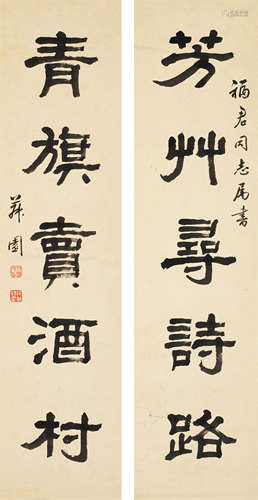 芳艸尋詩路
福君同志属書
青旗賣酒村